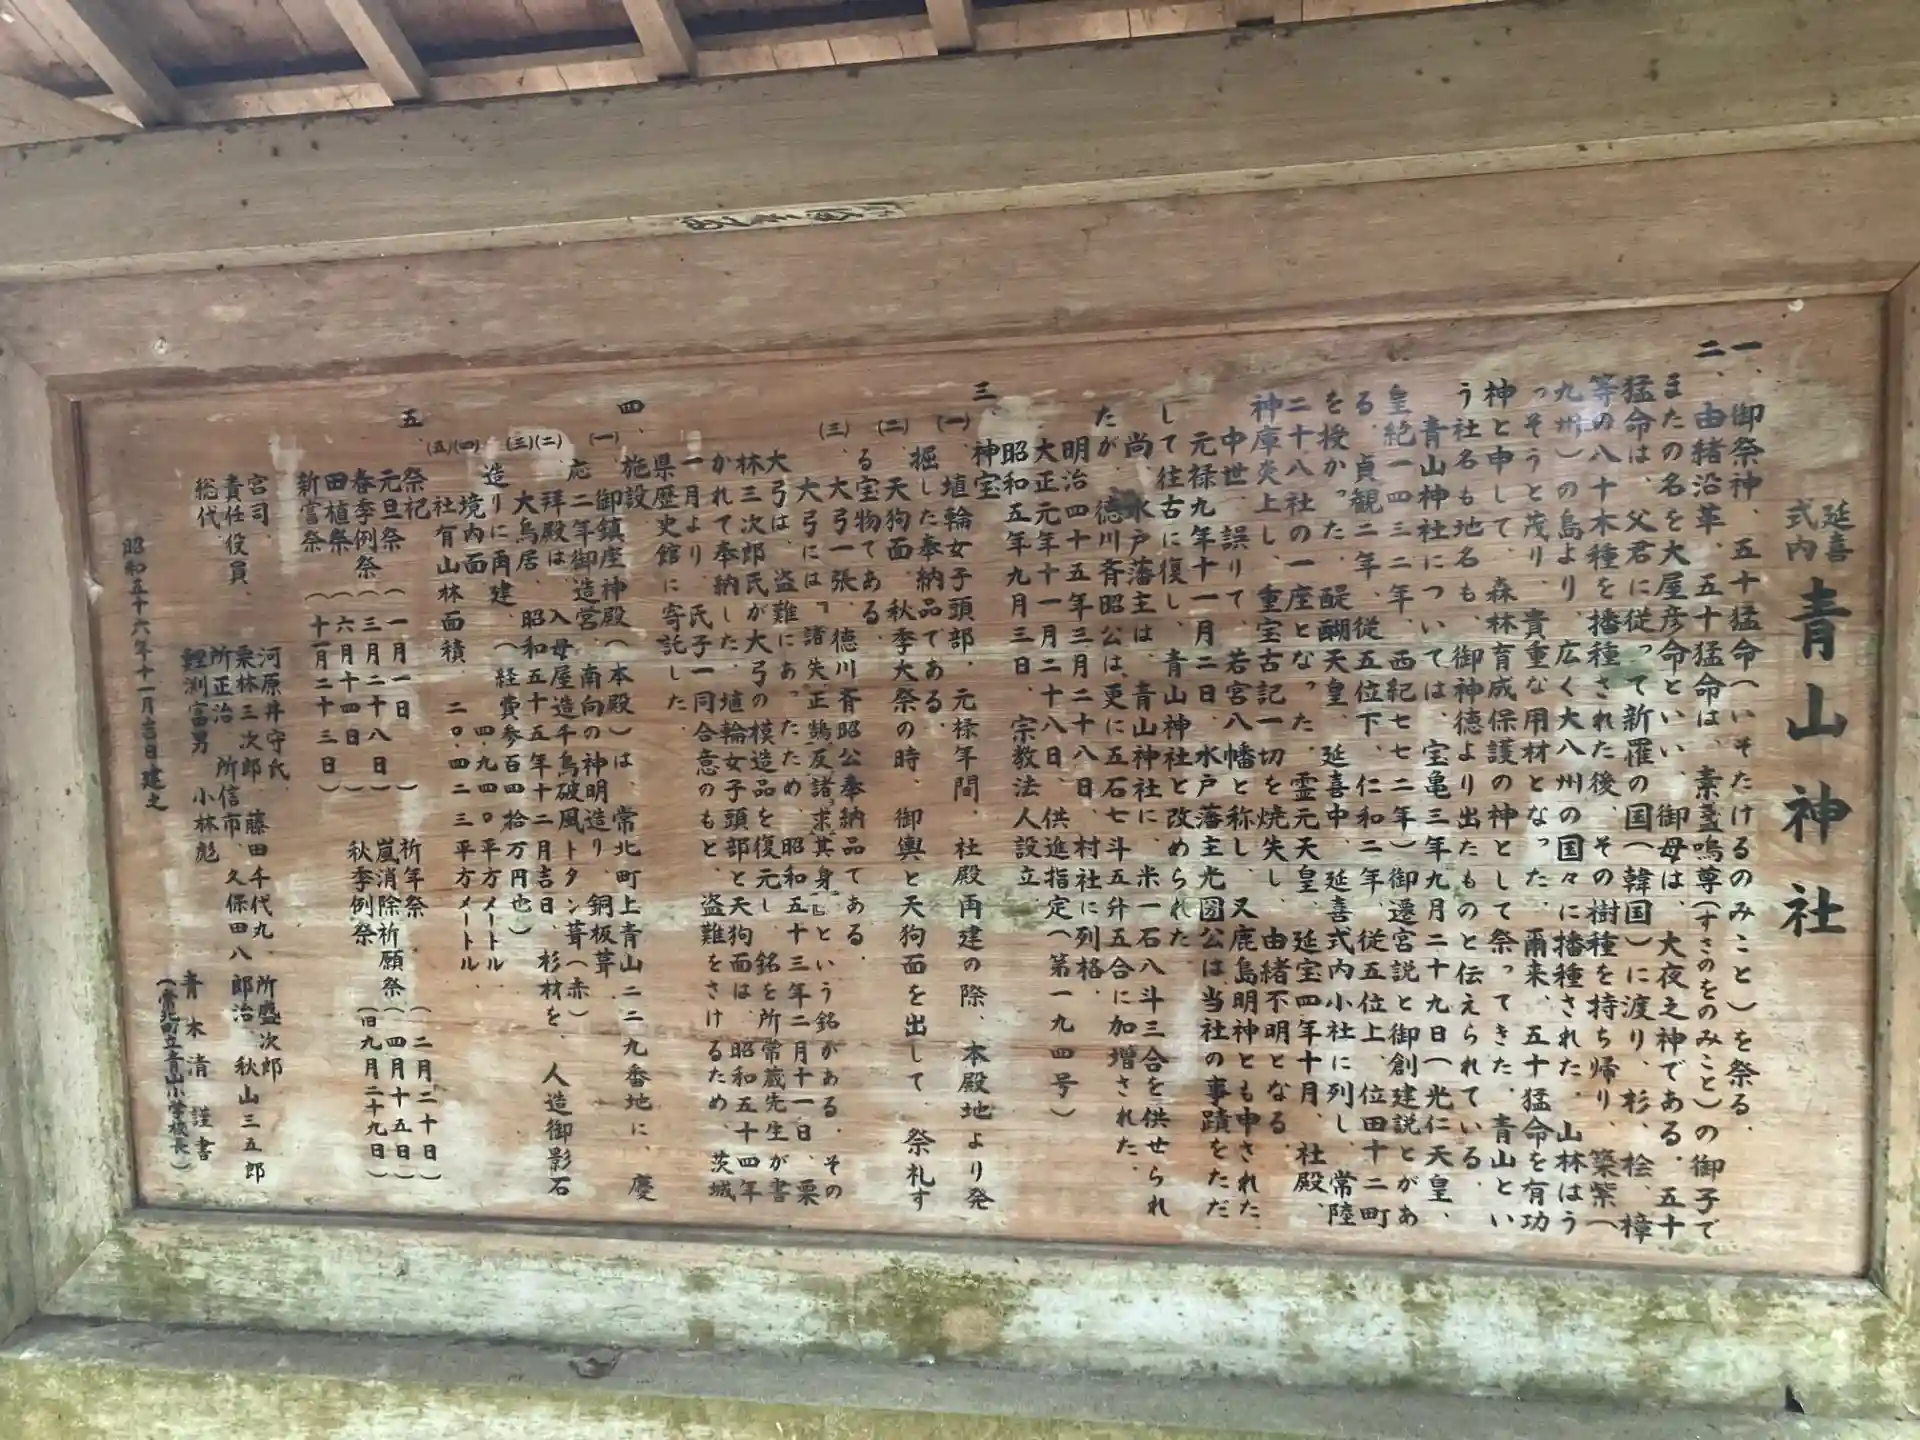 延喜
式内
青山神社
一、御祭神、五十猛命(いそたけるのみこと)を祭る。
二、由緒沿革、五十猛命は、素盞嗚尊(すさのをのみこと)の御子で
またの名を大屋彦命といい、御母は、大夜之神である。五十
猛命は、父君に従って新羅の国(韓国)に渡り、杉、桧、樟
等の八十木種を播種された後、その樹種を持ち帰り、築紫(
九州)の島より、広く大八州の国々に播種された。山林はう
っそうと茂り、貴重な用材となった。爾来、五十猛命を有功
神と申して、森林育成保護の神として祭ってきた。青山とい
う社名も地名も、御神徳より出たものと伝えられている。
青山神社については、宝亀三年九月二十九日(光仁天皇、
皇紀一四三二年、西紀七七二年)御遷宮説と御創建説とがあ
る。貞観二年、従五位下、仁和二年、従五位上、位田十二町
を授かった。醍醐天皇、延喜中、延喜式内小社に列し、常陸
二十八社の一座となった。霊元天皇、延宝四年十月、社殿、
神庫炎上し、重宝古記一切を焼失し、由緒不明となる。
中世、誤りて、若宮八幡と称し、又鹿島明神とも申された。
元禄九年十一月二日、水戸藩主光圀公は、当社の事蹟をただ
して往古に復し、青山神社と改められた。
尚、水戸藩主は、青山神社に、米一石八斗三合を供せられ
たが、徳川斉昭公は、更に五石七斗五升五合に加増された。
明治四十五年三月二十八日、村社に列格。
大正元年十一月二十八日、供進指定(第一九四号)
昭和五年九月三日、宗教法人設立。
三、神宝
(一)、埴輪女子頭部、元禄年間、社殿再建の際、本殿地より発
掘した奉納品である。
(二)、天狗面、秋季大祭の時、御輿と天狗面を出して、祭礼す
る宝物である。
(三)、大弓一張、徳川斉昭公奉納品である。
大弓には「諸失正鵠、反諸求其身」という銘がある。その
大弓は、盗難にあったため、昭和五十三年二月十一日、栗
林三次郎氏が大弓の模造品を復元し、銘を所常蔵先生が書
かれて奉納した。埴輪女子頭部と天狗面は、昭和五十四年
一月より、氏子一同合意のもと、盗難をさけるため、茨城
県歴史館に寄託した。
四、施設
(一)、御鎮座神殿(本殿)は、常北町上青山二二九番地に、慶
応二年御造営、南向の神明造り、銅板葺
(二)、拝殿は、入母屋造千鳥破風トタン葺(赤)
(三)、大鳥居、昭和五十五年十二月吉日、杉材を、人造御影石
造りに再建。(経費参百四拾万円也)
(四)、境内面 四、九四〇平方メートル
(五)、社有山林面積、二〇、四二三平方メートル
五、祭祀
元旦祭(一月一日) 祈年祭(二月二十日)
春季例祭(三月二十八日) 嵐消除祈願祭(四月十五日)
田植祭(六月十四日) 秋季例祭(旧九月二十九日)
新嘗祭(十一月二十三日)
宮司、河原井守氏、
責任役員、栗林三次郎、藤田千代九、所盛次郎
総代、所正治、所信市、久保田八郎治、秋山三五郎
鯉渕富男 小林彪
青木清 謹書
(常北町立青山小学校長)
昭和五十六年十一月吉日建之